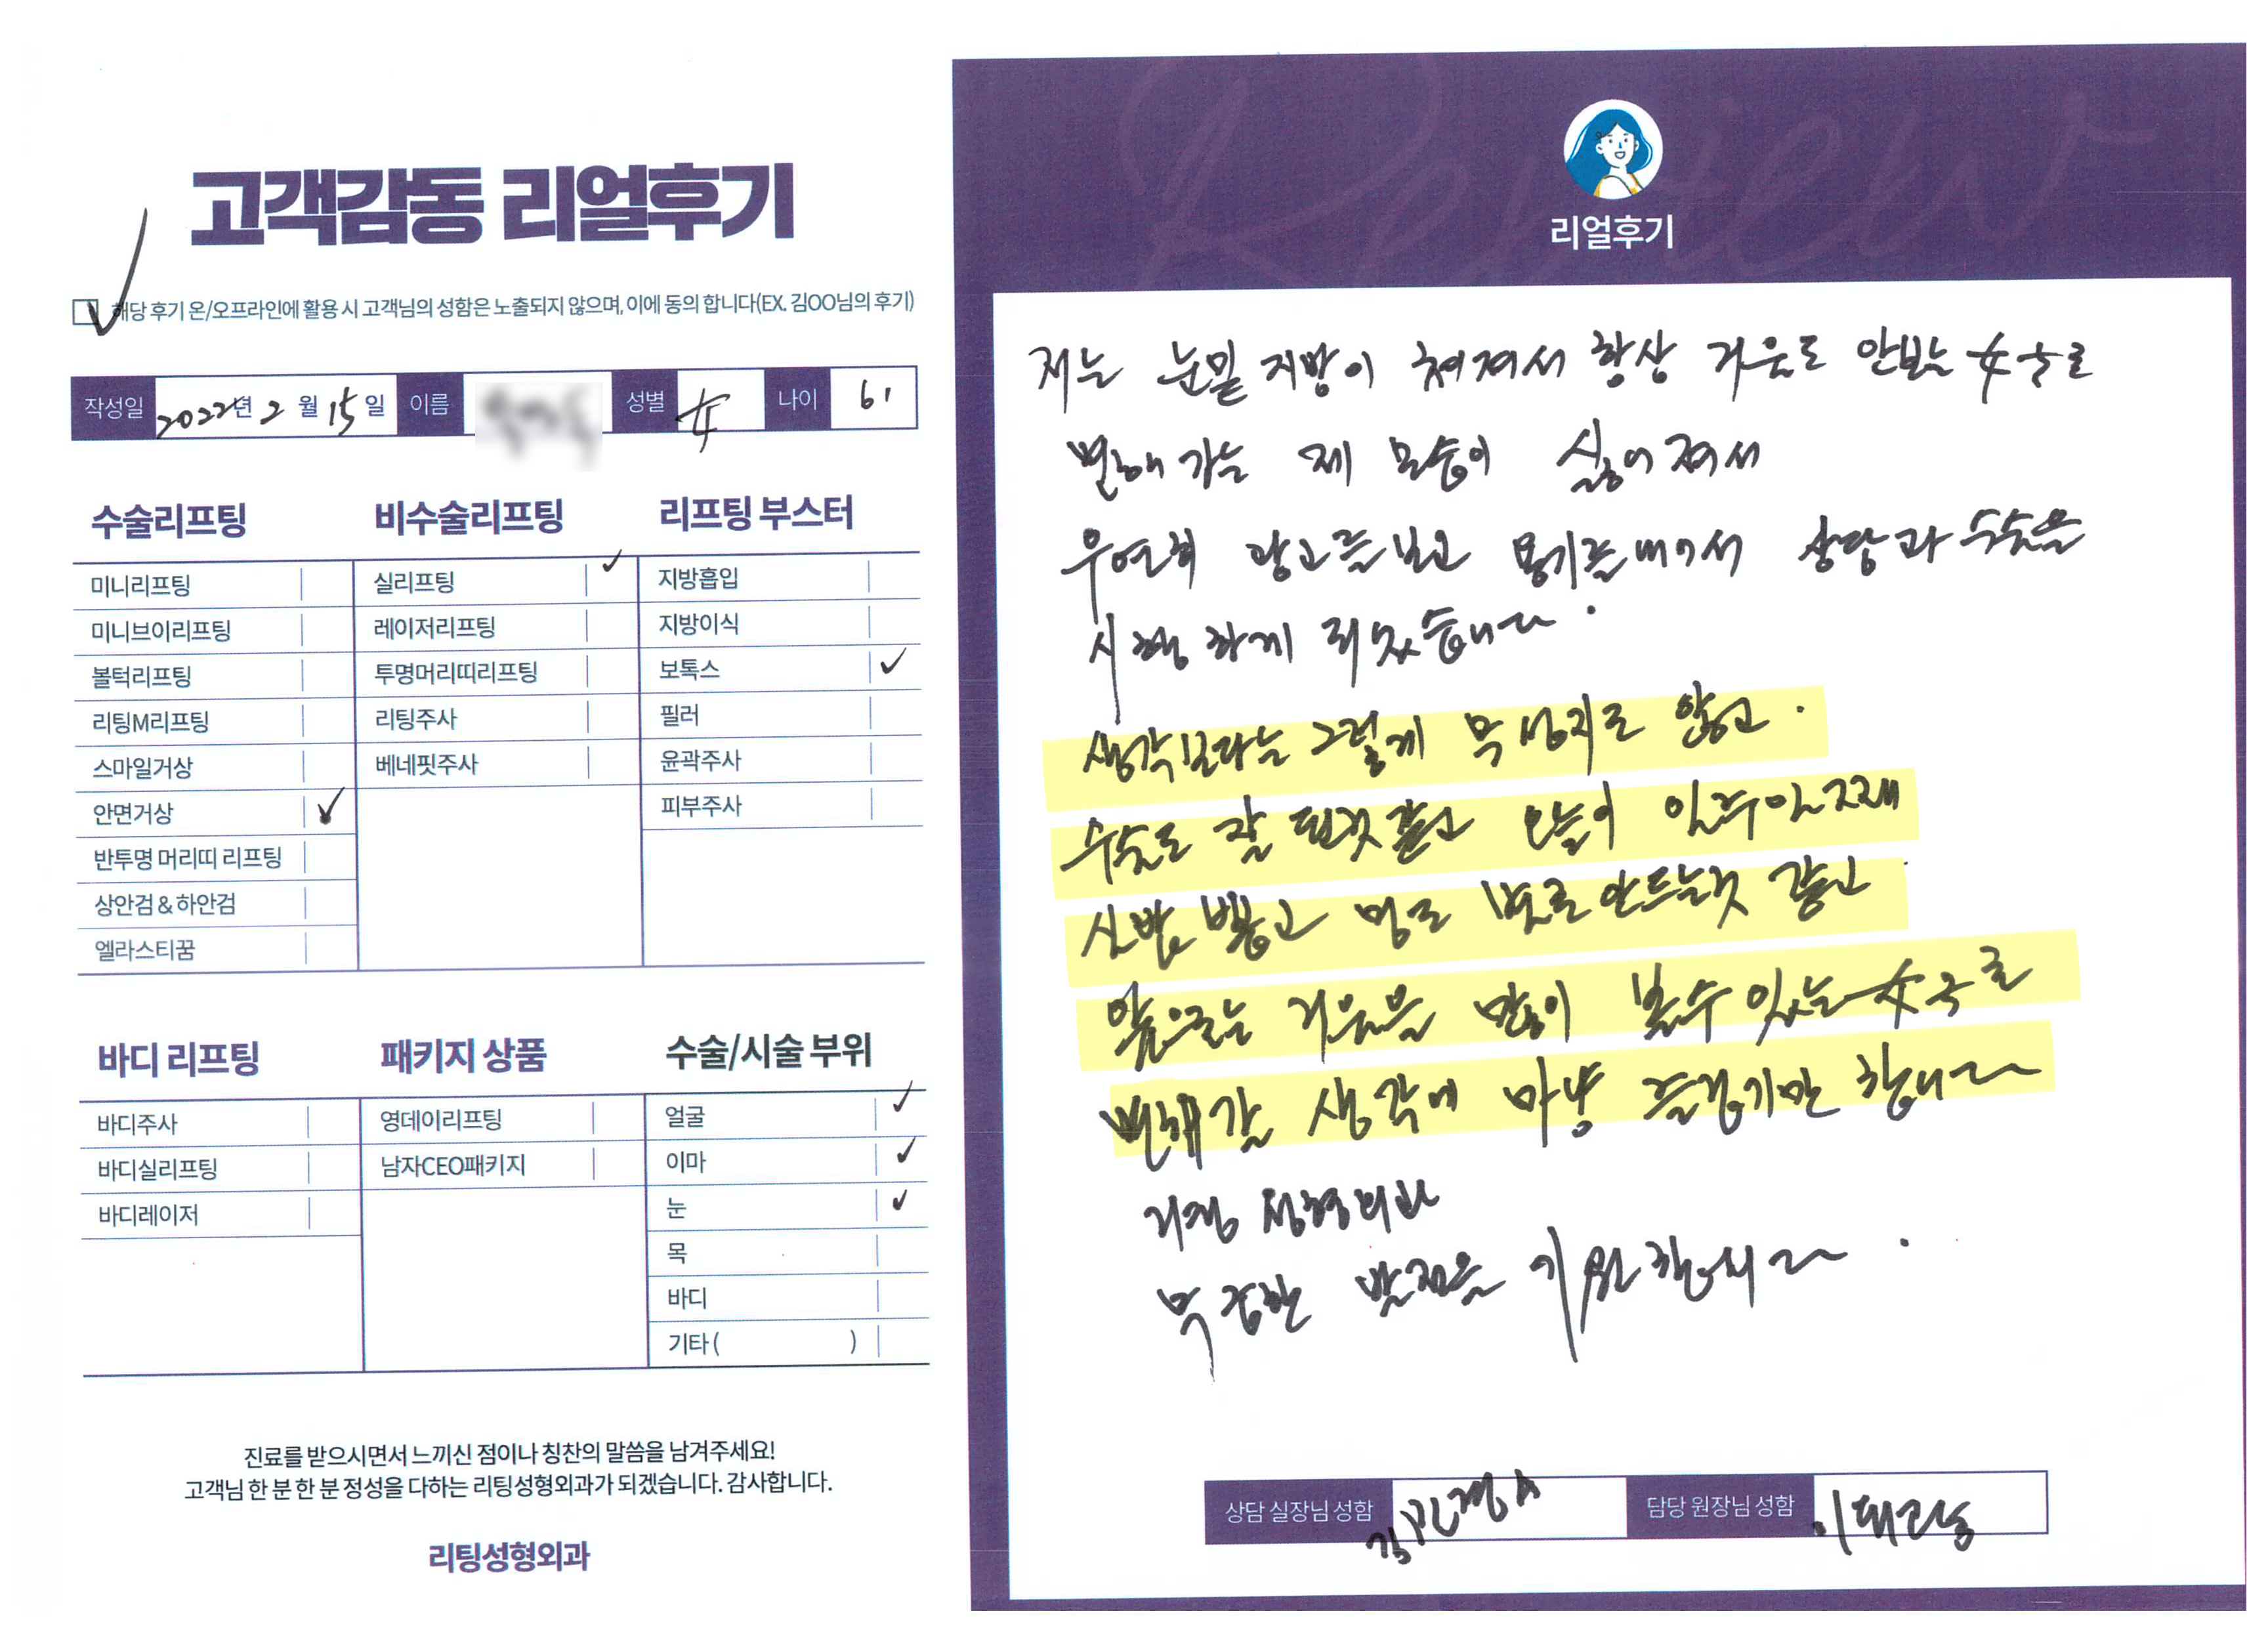 고객감동 리얼후기
해당 후기 온/오프라인에 활용 시 고객님의 성함은 노출되지 않으며, 이에 동의 합니다(EX. 김OO님의 후기)
작성일 2022년 2월 15일 이름 성별 女 나이 61
수술리프팅
미니리프팅
미니브이리프팅
볼턱리프팅
리팅M리프팅
스마일거상
안면거상
반투명 머리띠 리프팅
상안검 & 하안검
엘라스티꿈
비수술리프팅
실리프팅
레이저리프팅
투명머리띠리프팅
리팅주사
베네핏주사
리프팅 부스터
지방흡입
지방이식
보톡스
필러
윤곽주사
피부주사
바디 리프팅
바디주사
바디실리프팅
바디레이저
패키지 상품
영데이리프팅
남자CEO패키지
수술/시술 부위
얼굴
이마
눈
목
바디
기타 ( )
진료를 받으시면서 느끼신 점이나 칭찬의 말씀을 남겨주세요!
고객님 한 분 한 분 정성을 다하는 리팅성형외과가 되겠습니다. 감사합니다.
리팅성형외과
Review
리얼후기
저는 눈밑 지방이 쳐져서 항상 거울도 안보는 女子로
변해가는 제 모습이 싫어져서
우연히 광고를보고 용기를내어서 상담과 수술을
시행하게 되었습니다.
생각보다는 그렇게 무섭지도 않고.
수술도 잘 된것같고 오늘이 일주일째
실밥 뽑고 멍도 별로 안드는것 같고
앞으로는 거울을 많이 볼수있는 女子로
변해갈 생각에 마냥 즐겁기만 합니다
리팅 성형외과
무궁한 발전을 기원합니다.
상담 실장님 성함
담당 원장님 성함